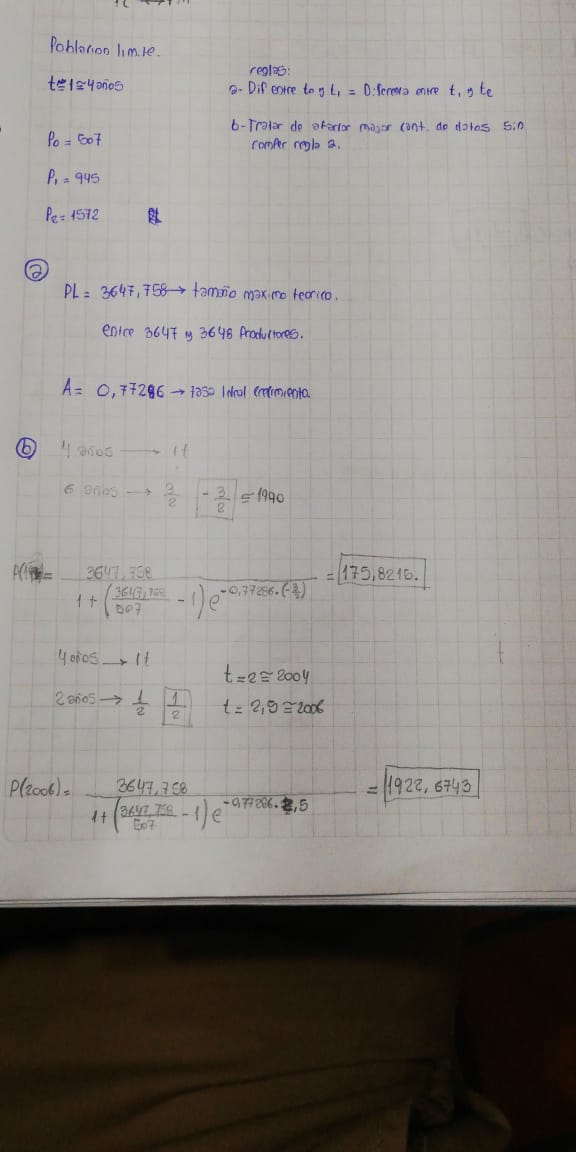 Poblacion limite.
t≅1≅4años
reglas:
a- Dif entre t0 y t1 = Diferencia entre t1 y t2
b- Tratar de abarcar mayor cant. de datos sin
romper regla a.
P0 = 507
P1 = 945
P2 = 1572
a
PL = 3647,758 → tamaño maximo teorico.
entre 3647 y 3648 Productores.
A = 0,77286 → tasa Ideal crecimiento.
b
4 años → 1t
6 años → 3/2 -3/2 ≅ 1990
= 3647,758 / 1+(3647,758/507 - 1)e^-0,77286.(-3/2) = 175,8216.
4 años → 1t
2 años → 1/2 1/2
t=2≅2004
t=2,5≅2006
P(2006)= 3647,758 / 1+(3647,758/507 - 1)e^-0,77286.2,5 = 1922,6743
t